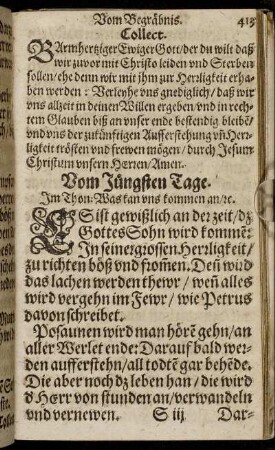 Vom Begräbnis. 413
Collect.
BArmhertziger Ewiger Gott/der du wilt daß
wir zuvor mit Christo leiden und Sterben
sollen/ehe denn wir mit jhm zur Herrligkeit erha-
ben werden: Verleyhe vns gnediglich/daß wir
vns allzeit in deinen Willen ergeben/vnd in rech-
tem Glauben biß an vnser ende bestendig bleibē/
vnd vns der zukünfftigen Aufferstehung vñ Herr-
ligkeit trösten vnd frewen mögen/durch Jesum
Christum vnsern Herren/Amen.
Vom Jüngsten Tage.
Im Thon: Was kan vns kommen an/ꝛc.
ES ist gewißlich an der zeit/dz
Gottes Sohn wird kommē:
In seiner grossen Herrligkeit/
zu richten böß vnd from̃en. Deñ wird
das lachen werden thewr/weñ alles
wird vergehn im Fewr/wie Petrus
davon schreibet.
Posaunen wird man hörē gehn/an
aller Werlet ende: Darauf bald wer-
den aufferstehn/all todtē gar behēde.
Die aber noch dz leben han/die wird
d HErr von stunden an/verwandeln
vnd vernewen. S iij Dar-